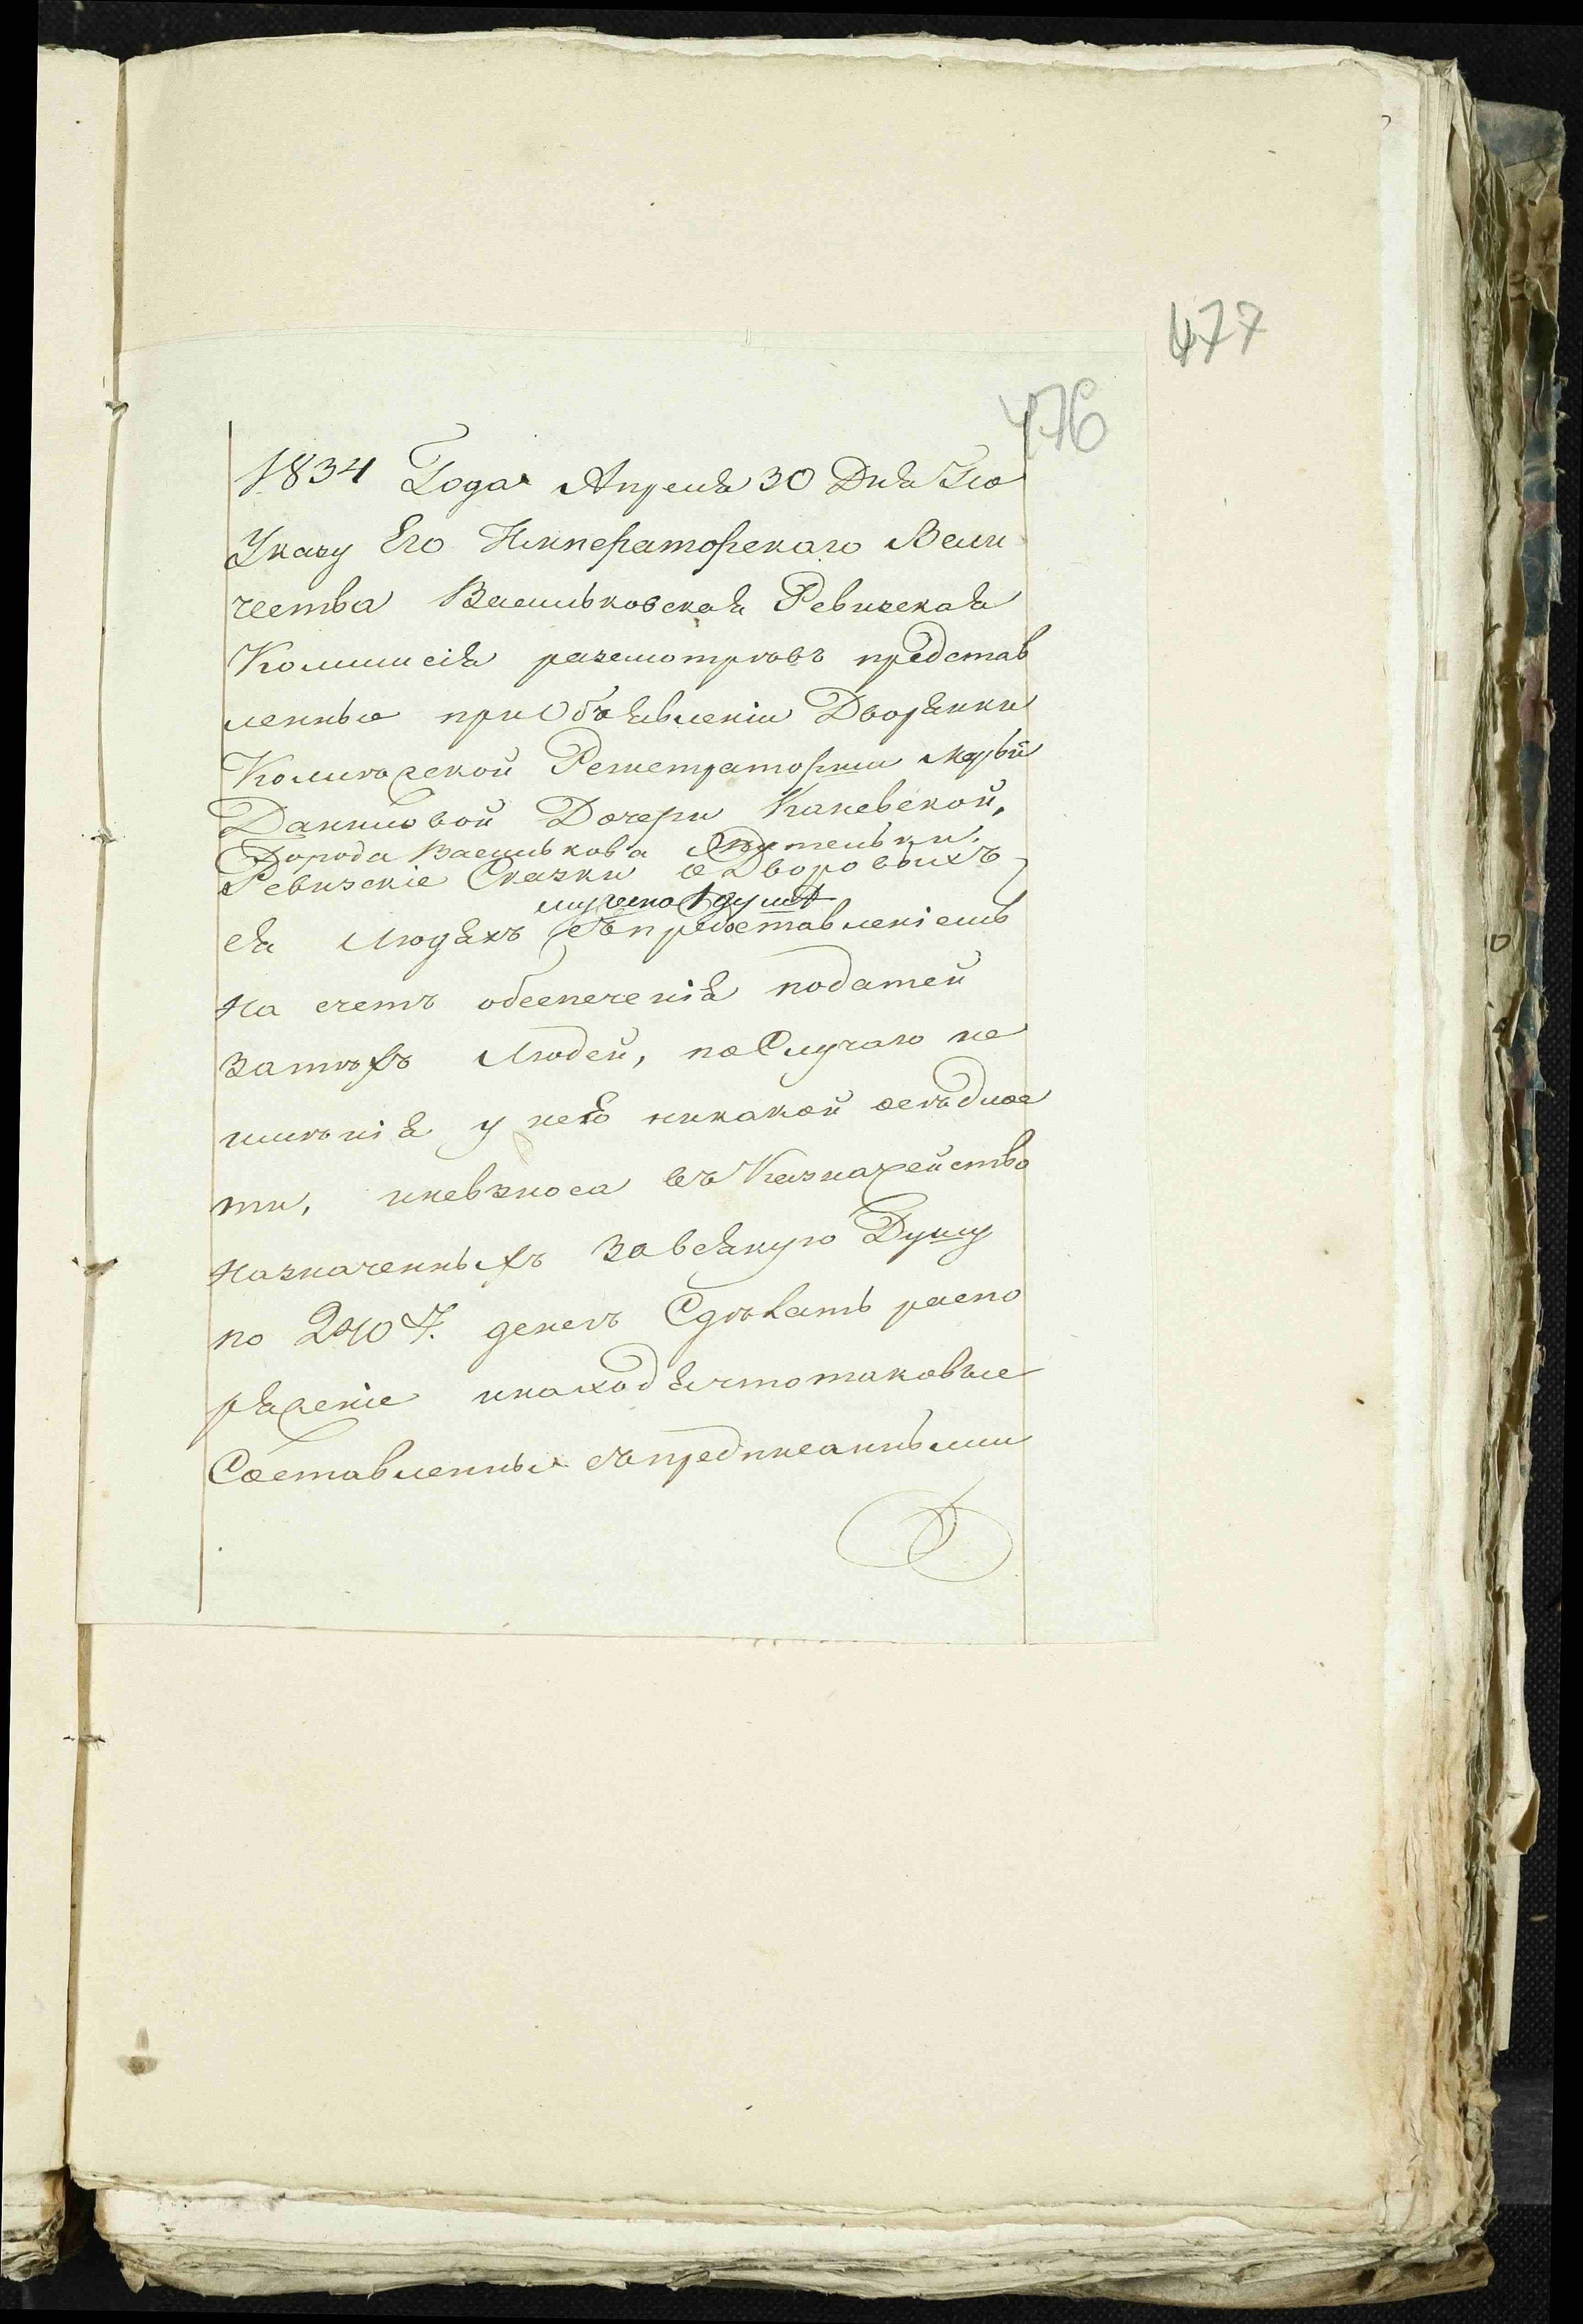 477
476
1834 Года Апреля 30 Дня По
Указу Его Императорскаго Вели
чества Васильковская Ревизская
Коммисія разсмотревъ представ
ленные при Объявленіи Дворянки
Колижской Регистраторши Марьи
Даниловой Дочери Каневской,
Города Василькова Жительки,
Ревизскіе Сказки о Дворовыхъ
мужеска 1 душа
ея Людяхъ съ представленіемъ
на счетъ обеспеченія податей
за тѣхъ Людей, по Случаю не
имѣнія у нея никакой осѣдлос
ти, и невзноса въ Казначейство
назначенныхъ за всякую Душу
по 240 р. денегъ Сдѣлать распо
ряженіе и находя что таковые
Составленны съ предписанными